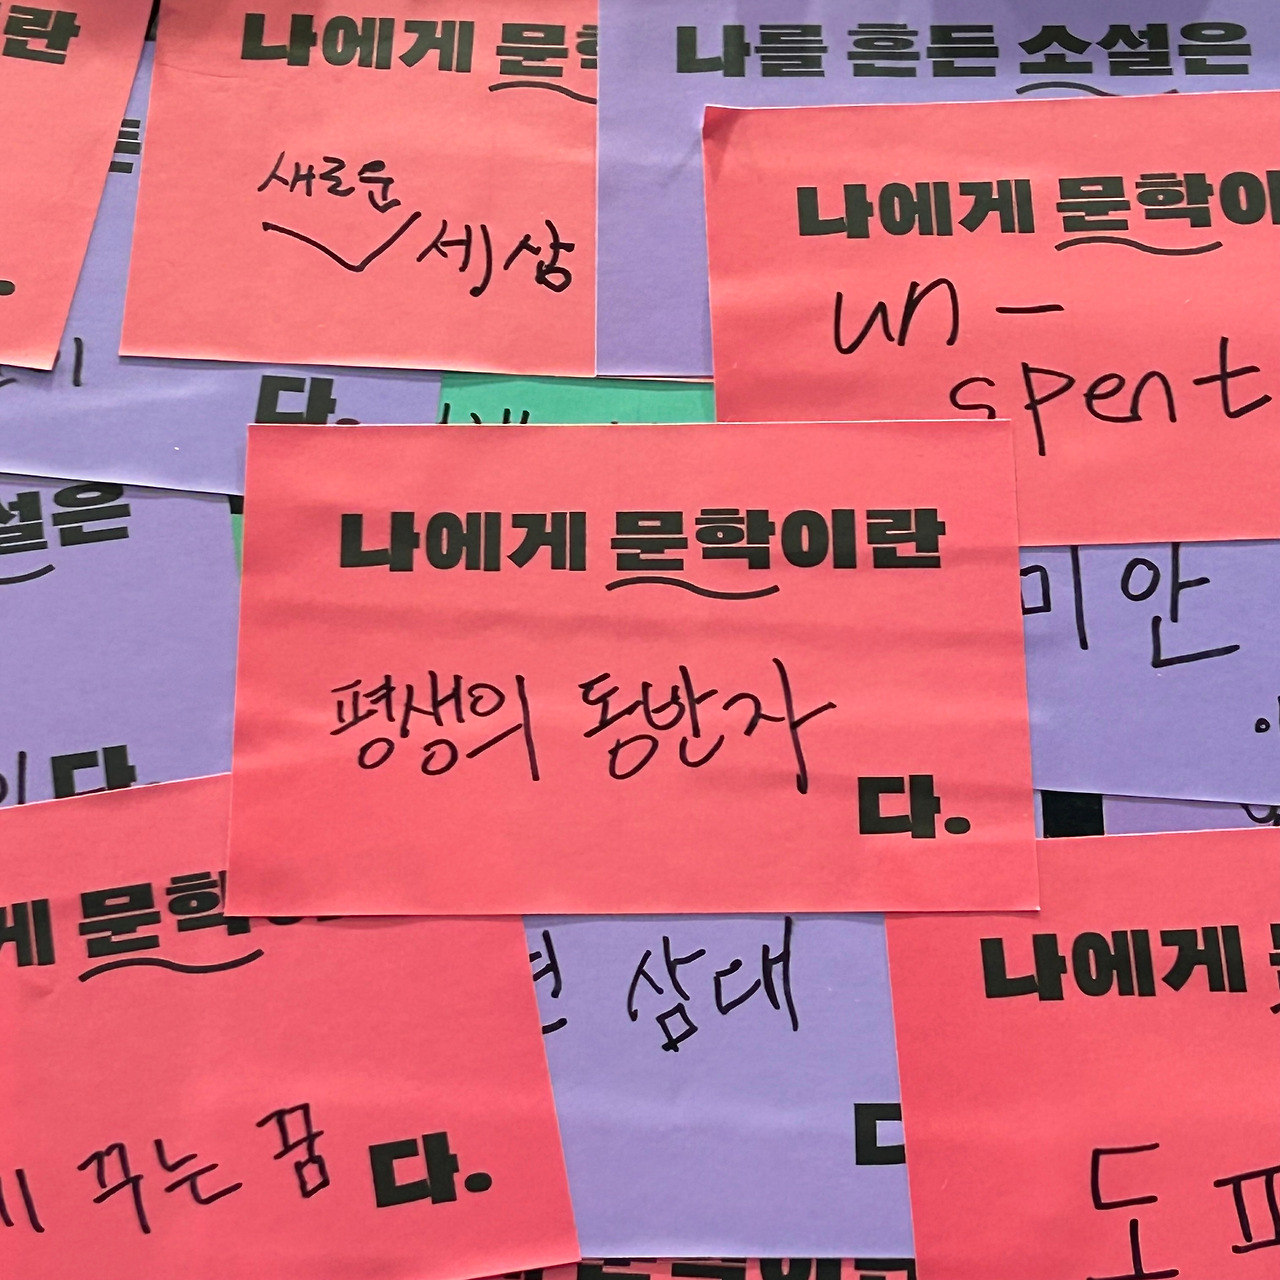 란
나에게 문
새로운
세상
나를 흔든 소설은
나에게 문학이
un-
spent
다.
설은
나에게 문학이란
평생의 동반자
다.
미안
다.
게 문학
꾸는 꿈
다.
삼대
나에게
도파